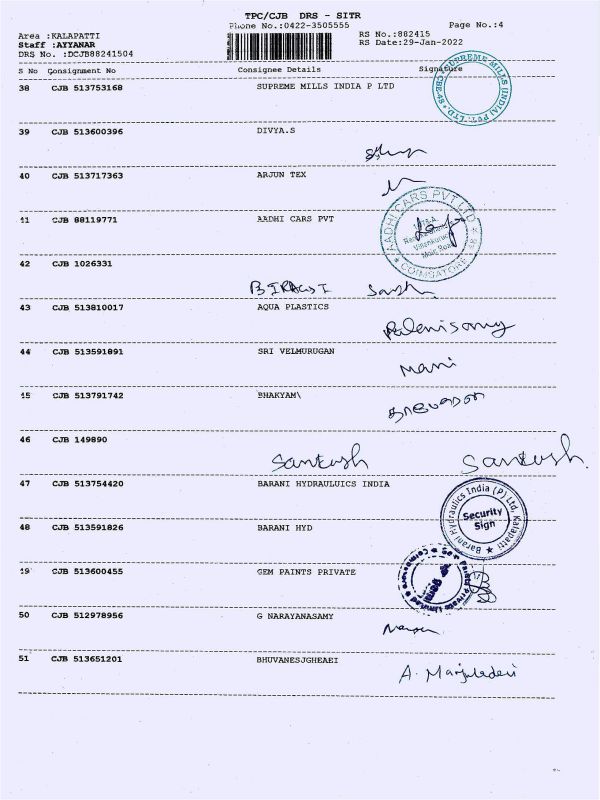 TPC/CJB DRS - SITR
Phone No.:0422-3505555
Page No.:4
Area :KALAPATTI
RS No.:882415
Staff :AYYANAR
RS Date:29-Jan-2022
DRS No. :DCJB88241504
S No Consignment No Consignee Details Signature
38 CJB 513753168 SUPREME MILLS INDIA P LTD
SUPREME MILLS (INDIA) PVT. LTD. CBE-48
39 CJB 513600396 DIVYA.S
40 CJB 513717363 ARJUN TEX
41 CJB 88119771 AADHI CARS PVT
AADHI CARS PVT LTD
COIMBATORE
42 CJB 1026331
43 CJB 513810017 AQUA PLASTICS
Palenisamy
44 CJB 513591891 SRI VELMURUGAN
Mani
45 CJB 513791742 BHAKYAM\
46 CJB 149890
Santosh Santosh
47 CJB 513754420 BARANI HYDRAULUICS INDIA
Barani Hydraulics India (P) Ltd, Kalapatti
Security
Sign
48 CJB 513591826 BARANI HYD
49 CJB 513600455 GEM PAINTS PRIVATE
50 CJB 512978956 G NARAYANASAMY
51 CJB 513651201 BHUVANESJGHEAEI
A. Manjuladevi